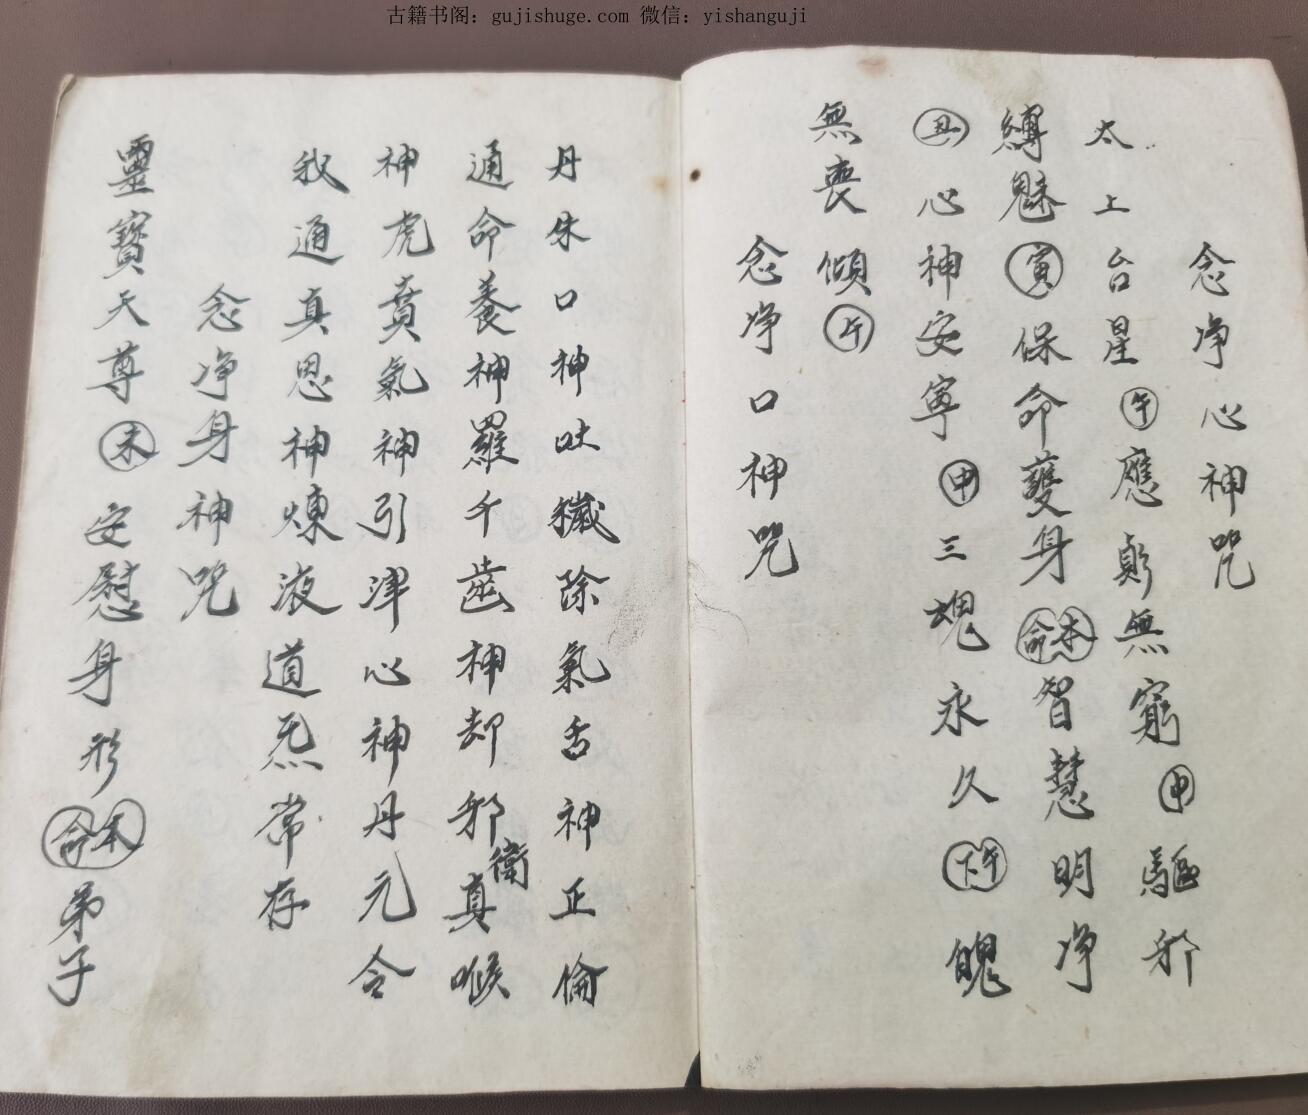 古籍书阁：gujishuge.com 微信：yishanguji
念净心神咒
太上台星午應彭無窮申驅邪
縛魅寅保命護身本命智慧明净
丑心神安寧申三魂永久午下魄
無喪傾斤
念净口神咒
丹朱口神吐穢除氣舌神正倫
通命養神羅千齒神却邪衛真喉
神虎賁氣神引津心神丹元令
我通真思神煉液道炁常存
念净身神咒
靈寶天尊未安慰身形本命弟子